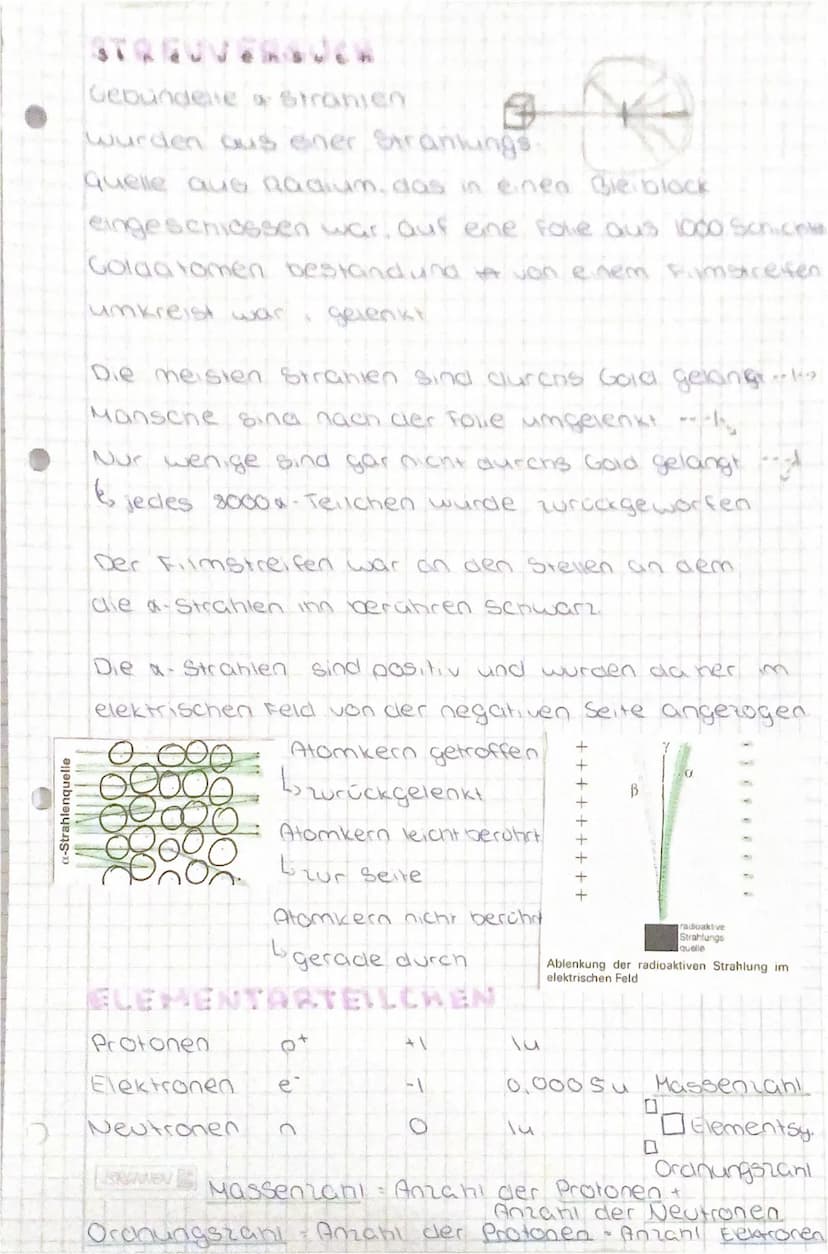 STREUVERSUCH
Gebündelte α Strahlen
wurden aus einer Strahlungs-
quelle aus Radium, das in einen Bleiblock
eingeschlossen war, auf eine Folie aus 1000 Schichte
Goldatomen bestand und von einem Filmstreifen
umkreist war, gelenkt
Die meisten Strahlen sind durchs Gold gelangt
Mansche sind nach der Folie umgelenkt
Nur wenige sind gar nicht durchs Gold gelangt
↳ jedes 8000 α-Teilchen wurde zurückgeworfen
Der Filmstreifen war an den Stellen an dem
die α-Strahlen ihn berühren schwarz
Die α-Strahlen sind positiv und wurden daher im
elektrischen Feld von der negativen Seite angezogen
α-Strahlenquelle
Atomkern getroffen
↳ zurückgelenkt
Atomkern leicht berührt
↳ zur Seite
Atomkern nicht berührt
↳ gerade durch
γ
α
β
radioaktive
Strahlungs
quelle
Ablenkung der radioaktiven Strahlung im
elektrischen Feld
ELEMENTARTEILCHEN
Protonen p+ +1 1u
Elektronen e- -1 0,0005u Massenzahl
Neutronen n 0 1u Elementsy.
Ordnungszahl
Massenzahl = Anzahl der Protonen +
Anzahl der Neutronen
Ordnungszahl = Anzahl der Protonen = Anzahl Elektronen